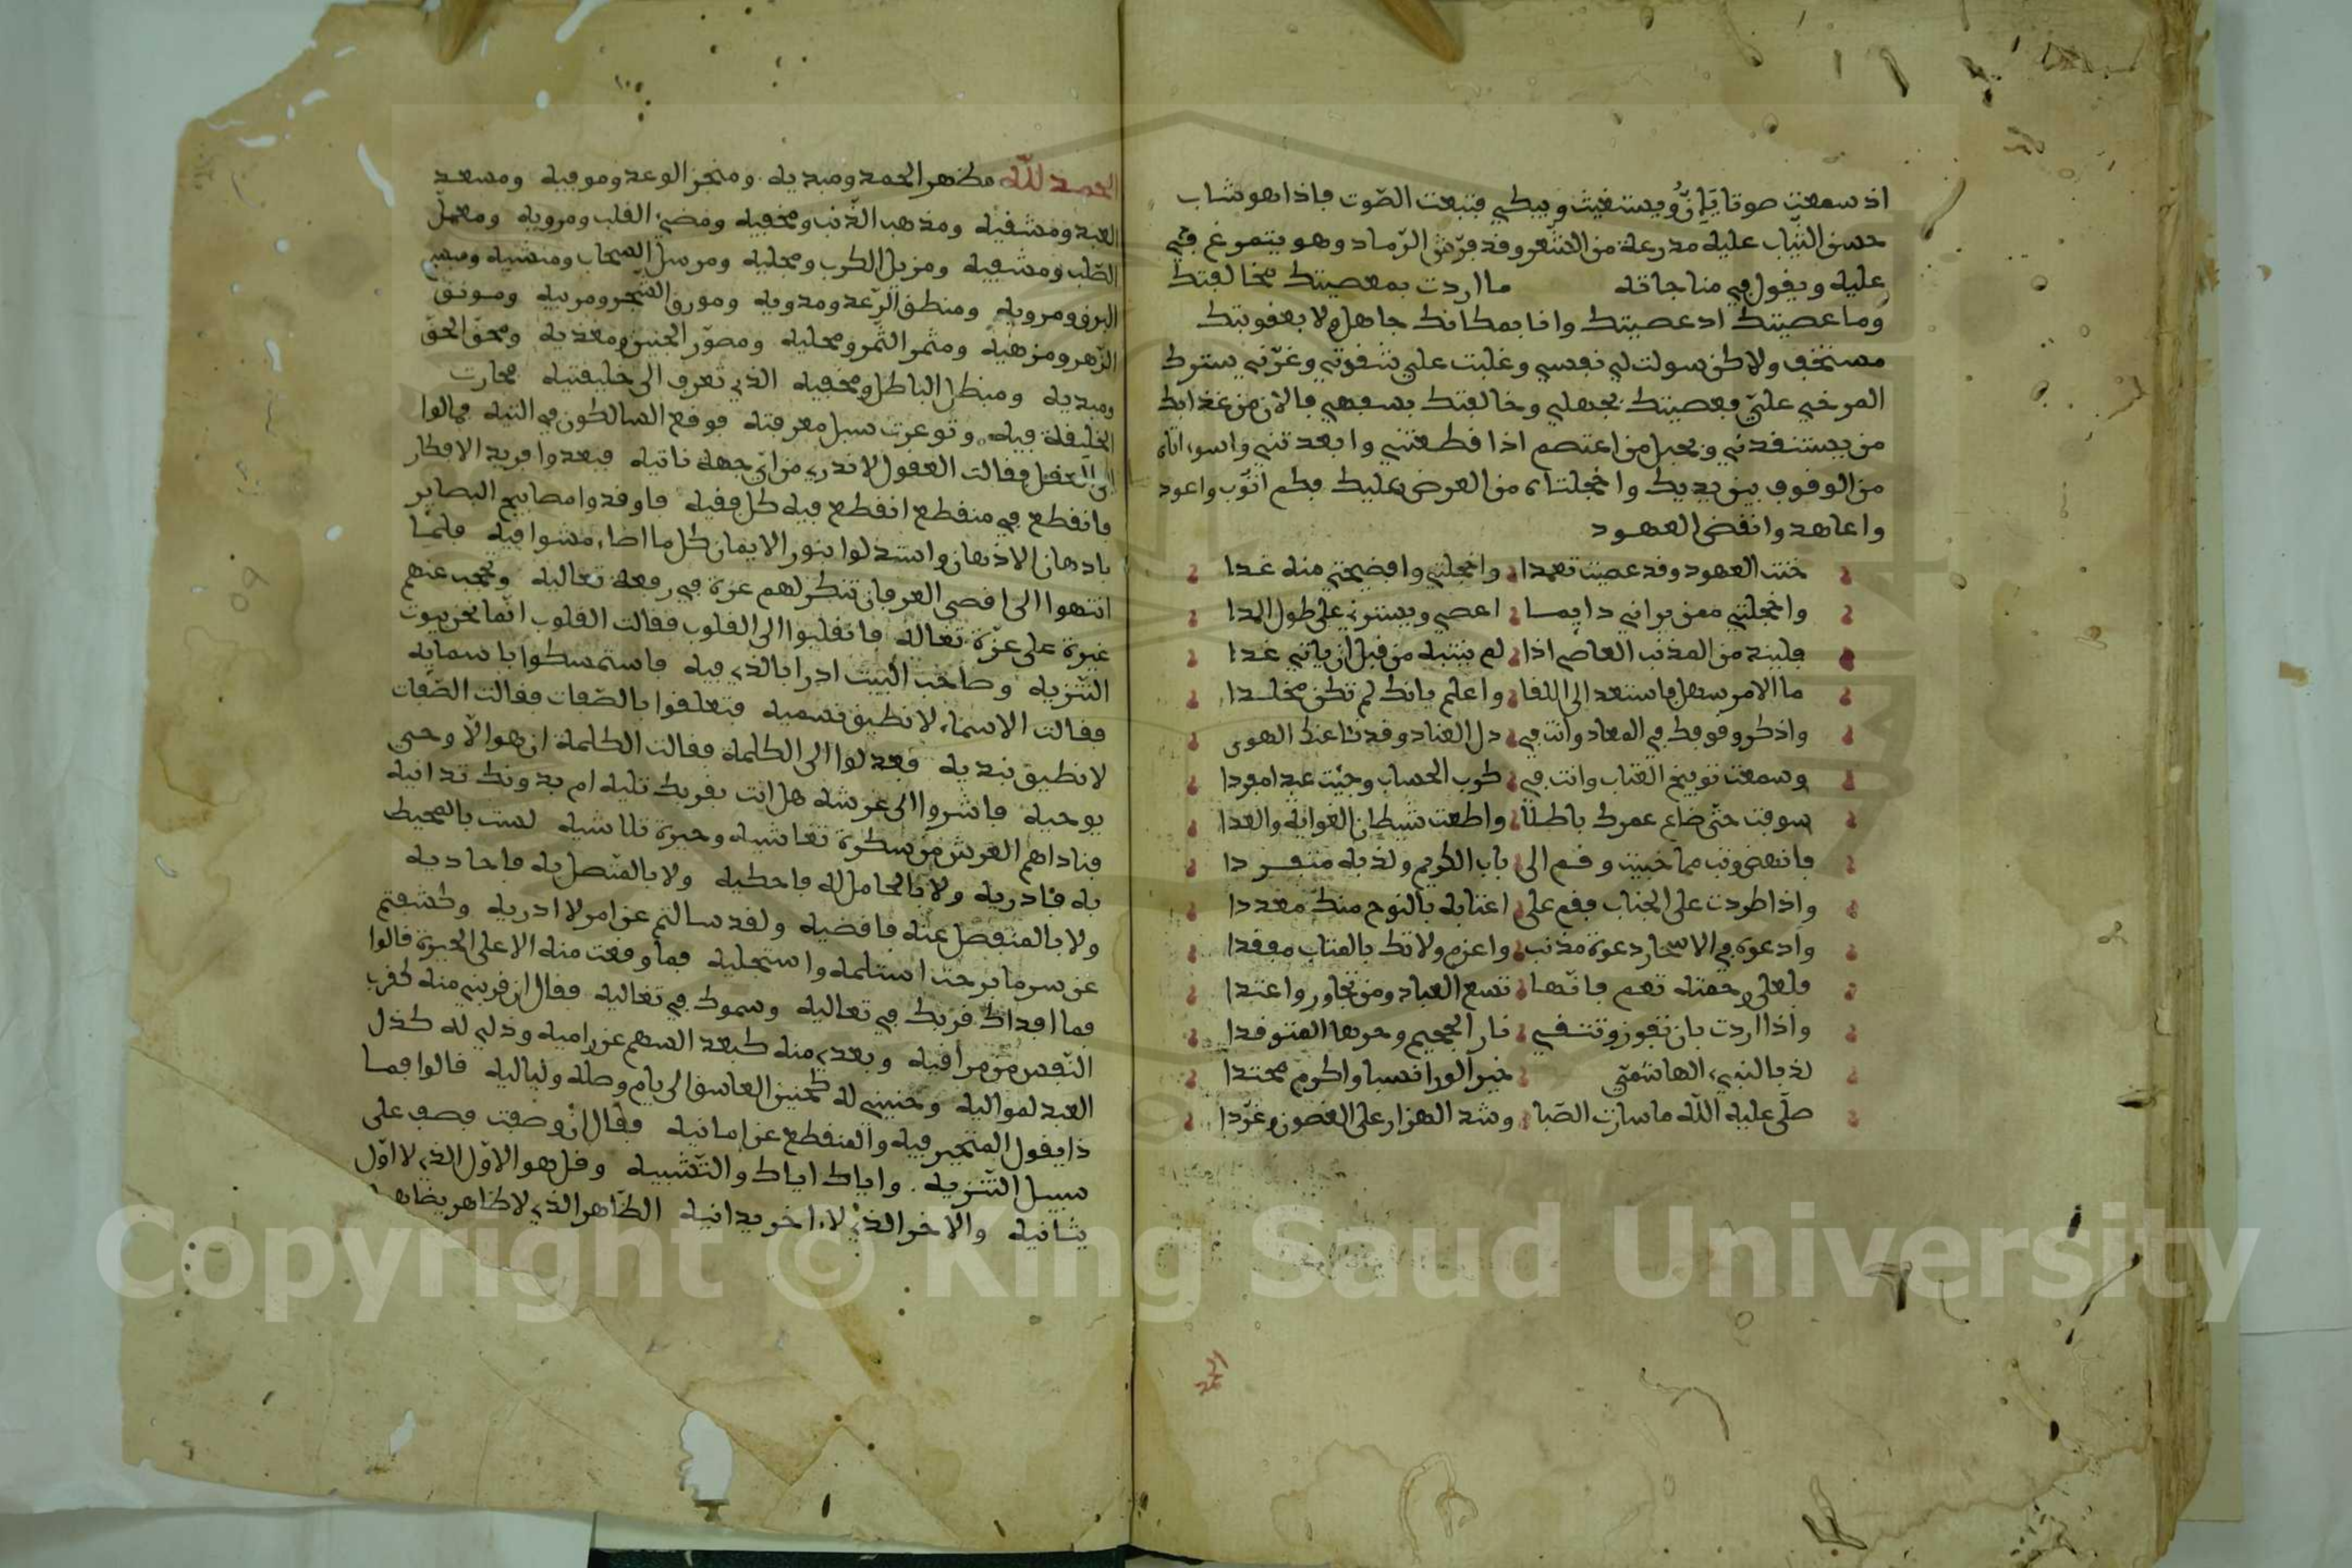 اذ سمعت صوتا يَإنُّ ويستغيث ويبكي فتبعت الصّوت فاذا هو شاب
حسن الثياب عليه مدرعة من الشعر وقد فرّش الرّماد وهو يتمرغ فيه
عليه ويقول في مناجاته ما اردت بمعصيتك مخالفتك
وما عصيتك اذ عصيتك وانا بمكانك جاهل ولا بعقوبتك
مستخف ولاكن سولت لي نفسي وغلبت علي شقوتي وغرّني سترك
المرخي عليّ فعصيتك بجهلي وخالفتك بسفهي فالان من عذابك
من يستنقذني وبحبل من اعتصم اذا قطعتني وابعدتني واسوءاتاه
من الوقوف بين يديك واخجلتاه من العرض عليك فكم اتوب واعود
واعاهد وانقض العهود
خنت العهود وقد عصيت تعمدا واخجلتي وافضيحتي منه غدا
واخجلتي ممن يراني دايما اعصي ويسترني على طول المدا
فليند من المذنب العاصي اذا لم ينتبه من قبل ان ياتي غدا
ما الامر سهل فاستعد الى اللقا واعلم بانك لم تكن مخلدا
واذكر وقوفك في المعاد وانت في ذل العناد وقد نثا عنك الهوى
وسمعت توبيخ العتاب وانت في كرب الحساب وجيت عبدا مفردا
سوفت حتى ضاع عمرك باطلا واطعت شيطان الغواية والعدا
فانهض وتب مما جنيت وقم الى باب الكريم ولذ به متفردا
واذا طردت على الجناب فقم على اعتابه بالنوح منك مغددا
وادعوه في الاسحار دعوة مذنب واعزم ولا تك بالمتاب مفقدا
فلعل رحمته تعم فانها تسع العباد ومن تجاور واعتدا
واذا اردت بان تفوز وتتقي نار الجحيم وحرها المتوقدا
لذ بالنبي الهاشمي خير الورا نسبا واكرم محتدا
صلى عليه الله ما سارت الصبا وشد الهزار على الغصون وغرّدا
الحمد لله مظهر الحمد ومبديه ومنجز الوعد وموفيه ومسعد
العبد ومشقيه ومذهب الذنب ومخفيه ومضيء القلب ومرويه ومعمل
الطلب ومشفيه ومزيل الكرب ومجليه ومرسل السحاب ومنشيه ومبسم
البرق ومرويه ومنطق الرّعد ومدويه ومورق الشجر ومربيه ومونق
الزهر ومزهيه ومثمر الثمر ومحليه ومصوّر الجنين ومغذيه ومحق الحق
ومبديه ومبطل الباطل ومخفيه الذي تعرف الى خليقتيه فحارت
الخليقة فيه وتوعرت سبل معرفته فوقع السالكون في التيه فمالوا
الى العقل فقالت العقول لا ندري من اي جهة ناتيه فبعدوا فريد الافكار
فانقطع في منقطع انقطع فيه كل فقيه فاوقدوا مصابيح البصاير
بادهان الاذهان واستدلوا بنور الايمان كل ما اضاء مشوا فيه فلما
انتهوا الى اقصى العرفان تنكر لهم عزة في رفعة تعاليه وتحجب عنهم
غيرة على عزّة تعاله فانقلبوا الى القلوب فقالت القلوب انما نحن بيوت
التنزيه وصاحب البيت ادرا بالذي فيه فاستمسكوا باسمايه
فقالت الاسماء لا نطيق نسميه فتعلقوا بالصّفات فقالت الصّفات
لا نطيق نبديه فعدلوا الى الكلمة فقالت الكلمة ان هو الا وحي
يوحيه فاشروا الى عرشه هل انت بقربك تليه ام بدونك تدانيه
فناداهم العرش من سكرة تغاشيه وحيرة تلاشيه لست بالمحيط
به فادريه ولا بالحامل له فاحكيه ولا بالمتصل به فاحاديه
ولا بالمنفصل عنه فاقضيه ولقد سالتم عن امر لا ادريه وكشفتم
عن سر ما برحت استلمه واستجليه فما وقعت منه الا على الحيرة قالوا
فما افداك قربك في تعاليه وسموك في تعاليه فقال ان قربني منه كقرب
النّفس من مراقيه وبعدي منه كبعد السهم عن راميه وذلي له كذل
العبد لمواليه وحنيني له كحنين العاشق الى يام وصله ولياليه قالوا فما
ذا يقول المتحير فيه والمنقطع عن امانيه فقال ان وصفت فصف على
سبيل التنزيه واياك اياك والتشبيه وقل هو الاوّل الذي لا اوّل
يثانيه والاخر الذي لا اخر يدانيه الظاهر الذي لا ظاهر يضاهيه
Copyright © King Saud University